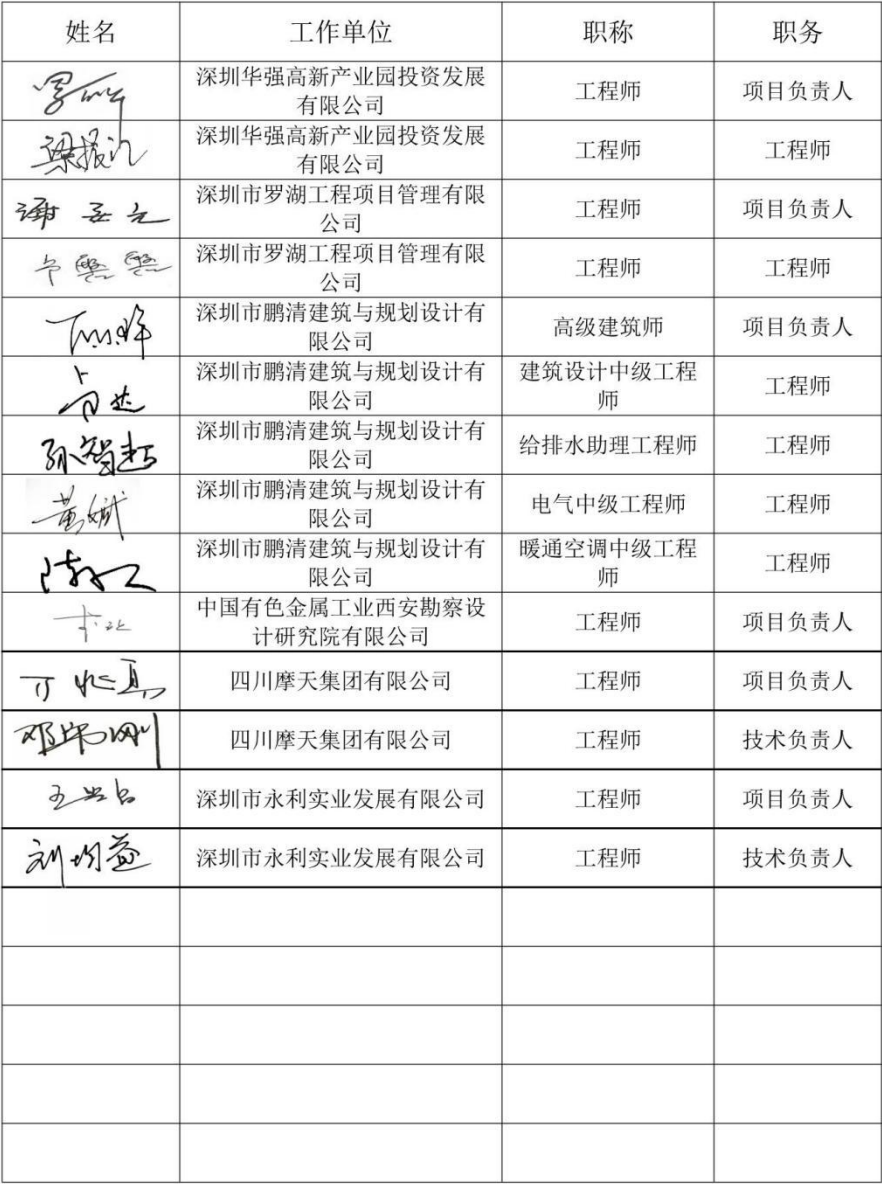 姓名 工作单位 职称 职务
深圳华强高新产业园投资发展
有限公司 工程师 项目负责人
梁振
深圳华强高新产业园投资发展
有限公司 工程师 工程师
谢
深圳市罗湖工程项目管理有限
公司 工程师 项目负责人
深圳市罗湖工程项目管理有限
公司 工程师 工程师
深圳市鹏清建筑与规划设计有
限公司 高级建筑师 项目负责人
深圳市鹏清建筑与规划设计有
限公司 建筑设计中级工程
师 工程师
孙智超
深圳市鹏清建筑与规划设计有
限公司 给排水助理工程师 工程师
黄斌
深圳市鹏清建筑与规划设计有
限公司 电气中级工程师 工程师
深圳市鹏清建筑与规划设计有
限公司 暖通空调中级工程
师 工程师
中国有色金属工业西安勘察设
计研究院有限公司 工程师 项目负责人
四川摩天集团有限公司 工程师 项目负责人
邓 刚 四川摩天集团有限公司 工程师 技术负责人
王 深圳市永利实业发展有限公司 工程师 项目负责人
刘均益 深圳市永利实业发展有限公司 工程师 技术负责人